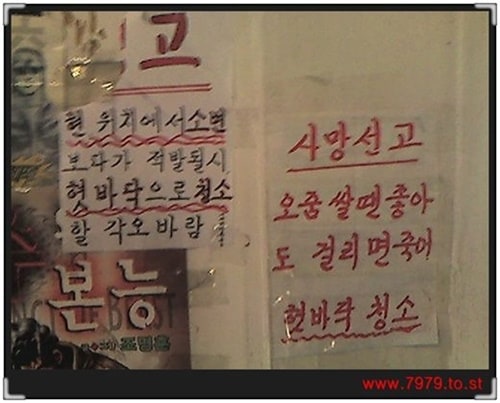 고
현 위치에서소변
보다가 적발될시
혓바닥으로 청소
할 각오바람
본능
사망선고
오줌쌀땐좋아
도 걸리면죽어
혓바닥 청소
www.7979.to.st